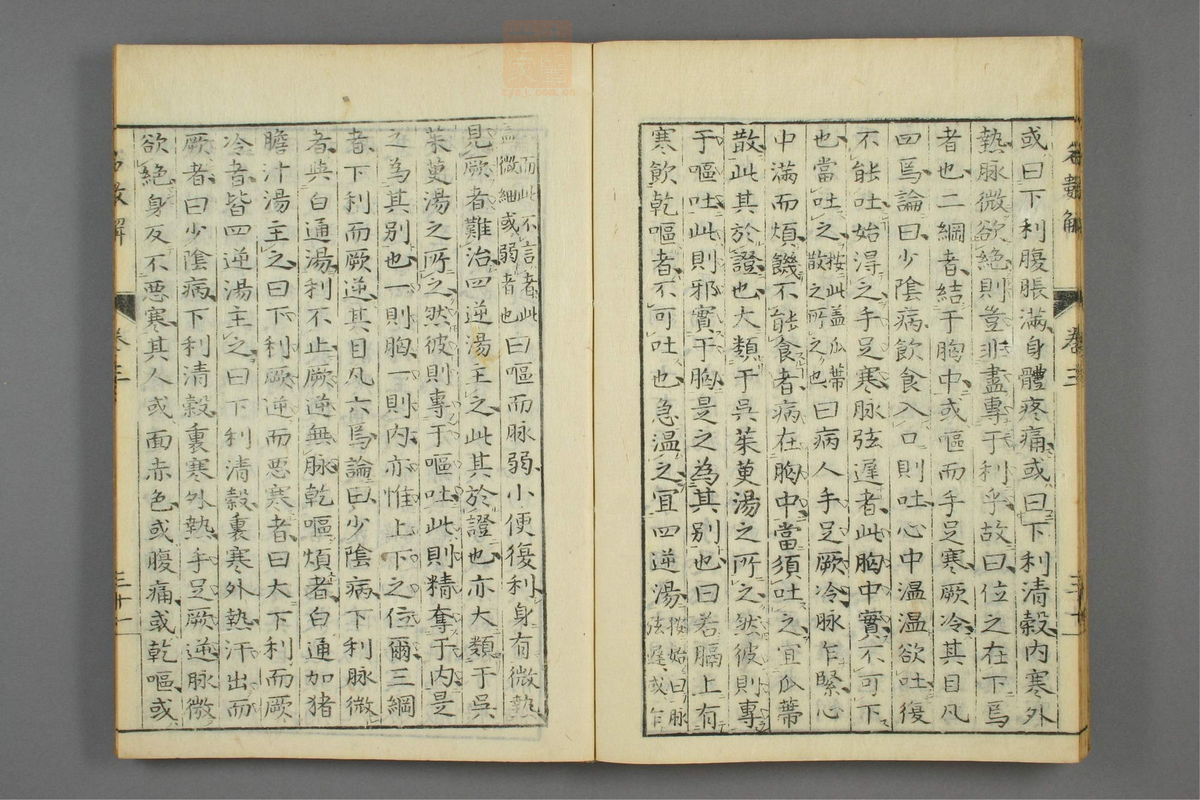 或曰下利腹脹滿身體疼痛或曰下利清穀内寒外
熱脉微欲絶則豈非盡專于利乎故曰位之在下焉
者也二綱者結于胸中或嘔而手足寒厥冷其目凡
四焉論曰少陰病飲食入口則吐心中温温欲吐復
不能吐始得之手足寒脉弦遲者此胸中實不可下
也當吐之按此盖瓜蒂散之所之也曰病人手足厥冷脉乍緊心
中滿而煩饑不能食者病在胸中當須吐之宜瓜蒂
散此其於證也大類于呉茱萸湯之所之然彼則專
于嘔吐此則邪實于胸是之為其别也曰若膈上有
寒飲乾嘔者不可吐也急温之宜四逆湯按始曰脉弦遲或乍
卷三
而此不言者此亦微細或弱者也曰嘔而脉弱小便復利身有微熱
見厥者難治四逆湯主之此其於證也亦大類于呉
茱萸湯之所之然彼則專于嘔吐此則精奪于内是
之為其别也一則胸一則内亦惟上下之位爾三綱
者下利而厥逆其目凡六焉論曰少陰病下利脉微
者與白通湯利不止厥逆無脉乾嘔煩者白通加猪
膽汁湯主之曰下利厥逆而惡寒者曰大下利而厥
冷者皆四逆湯主之曰下利清穀裏寒外熱汗出而
厥者曰少陰病下利清穀裏寒外熱手足厥逆脉微
欲絶身反不惡寒其人或面赤色或腹痛或乾嘔或